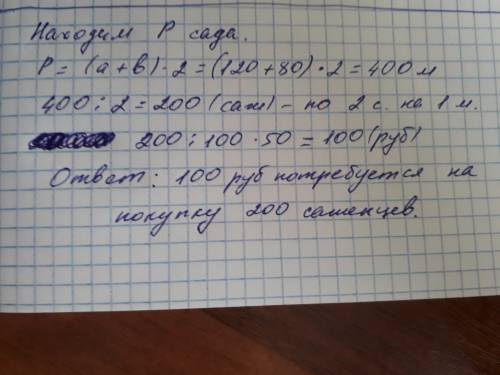 Находим P сада.
P = (a + b) · 2 = (120 + 80) · 2 = 400 м
400 : 2 = 200 (саж) – по 2 с. на 1 м.
200 : 100 · 50 = 100 (руб)
Ответ: 100 руб потребуется на
покупку 200 саженцев.